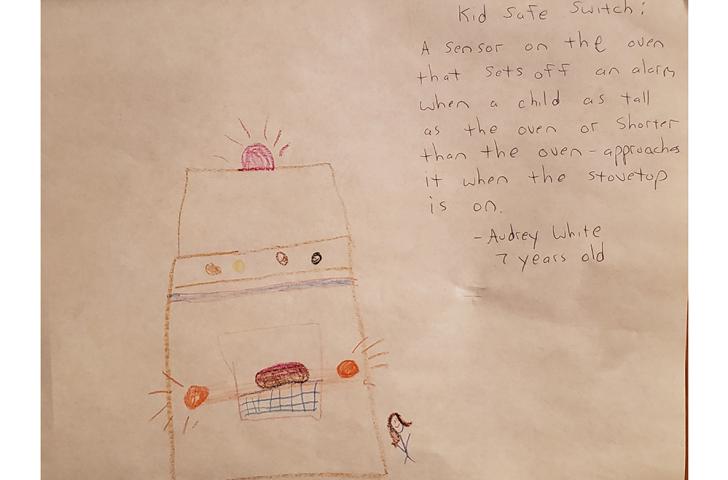 Kid Safe Switch:
A sensor on the oven
that sets off an alarm
when a child as tall
as the oven or shorter
than the oven - approaches
it when the stovetop
is on.
- Audrey White
7 years old